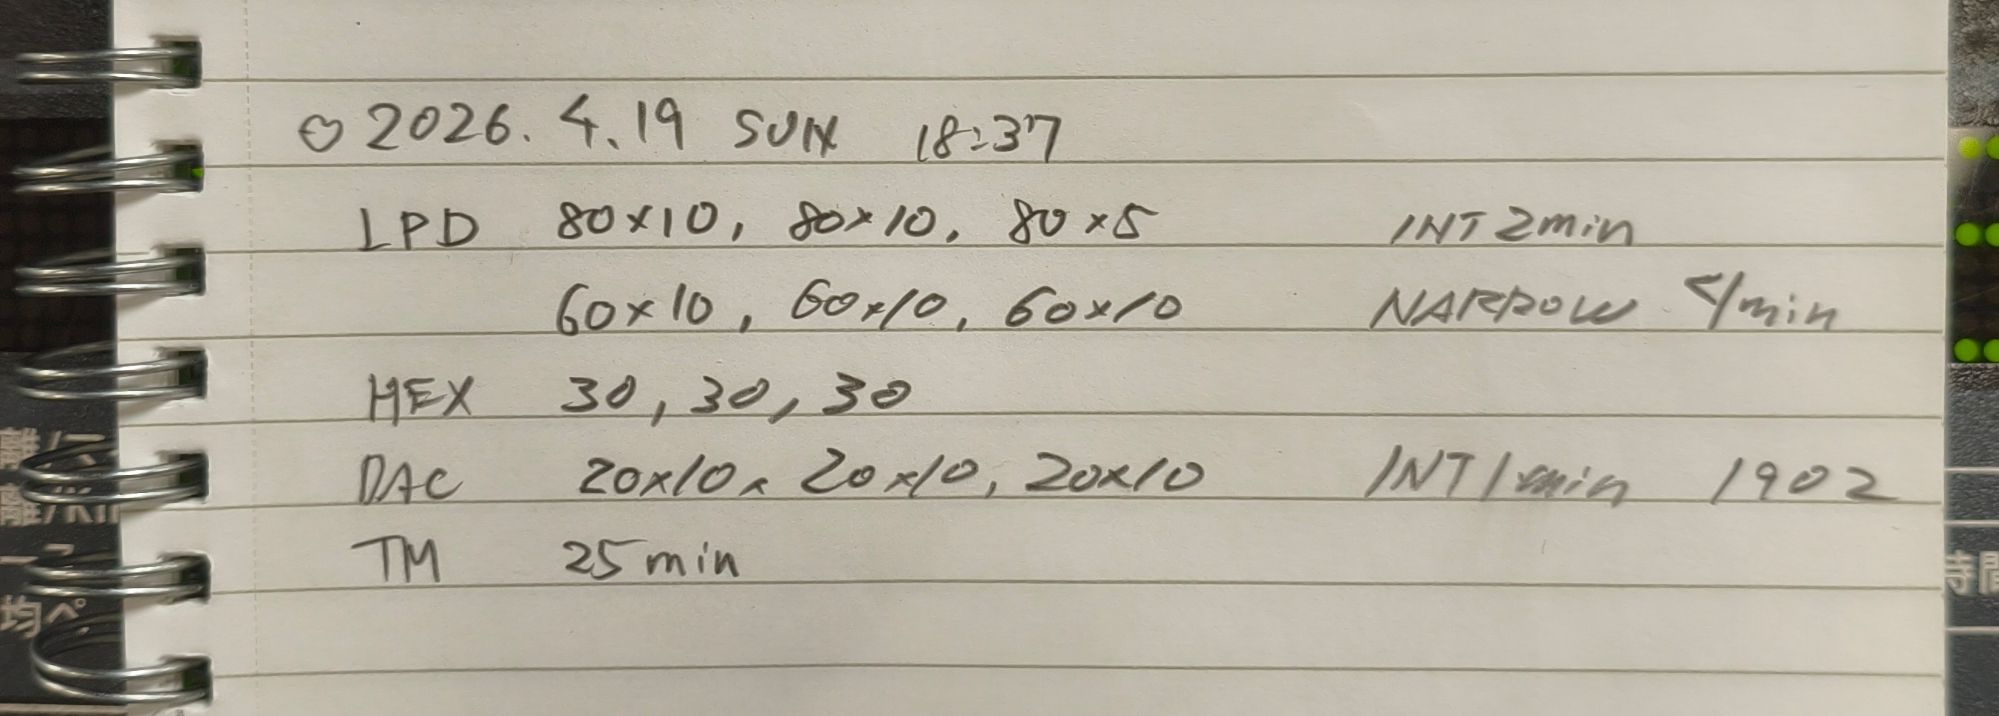 ♡ 2026. 4. 19 SUN 18:37
LPD 80×10, 80×10, 80×5 INT 2min
60×10, 60×10, 60×10 NARROW </min
HEX 30, 30, 30
DAC 20×10, 20×10, 20×10 INT 1min 1902
TM 25min
均ペ
時間